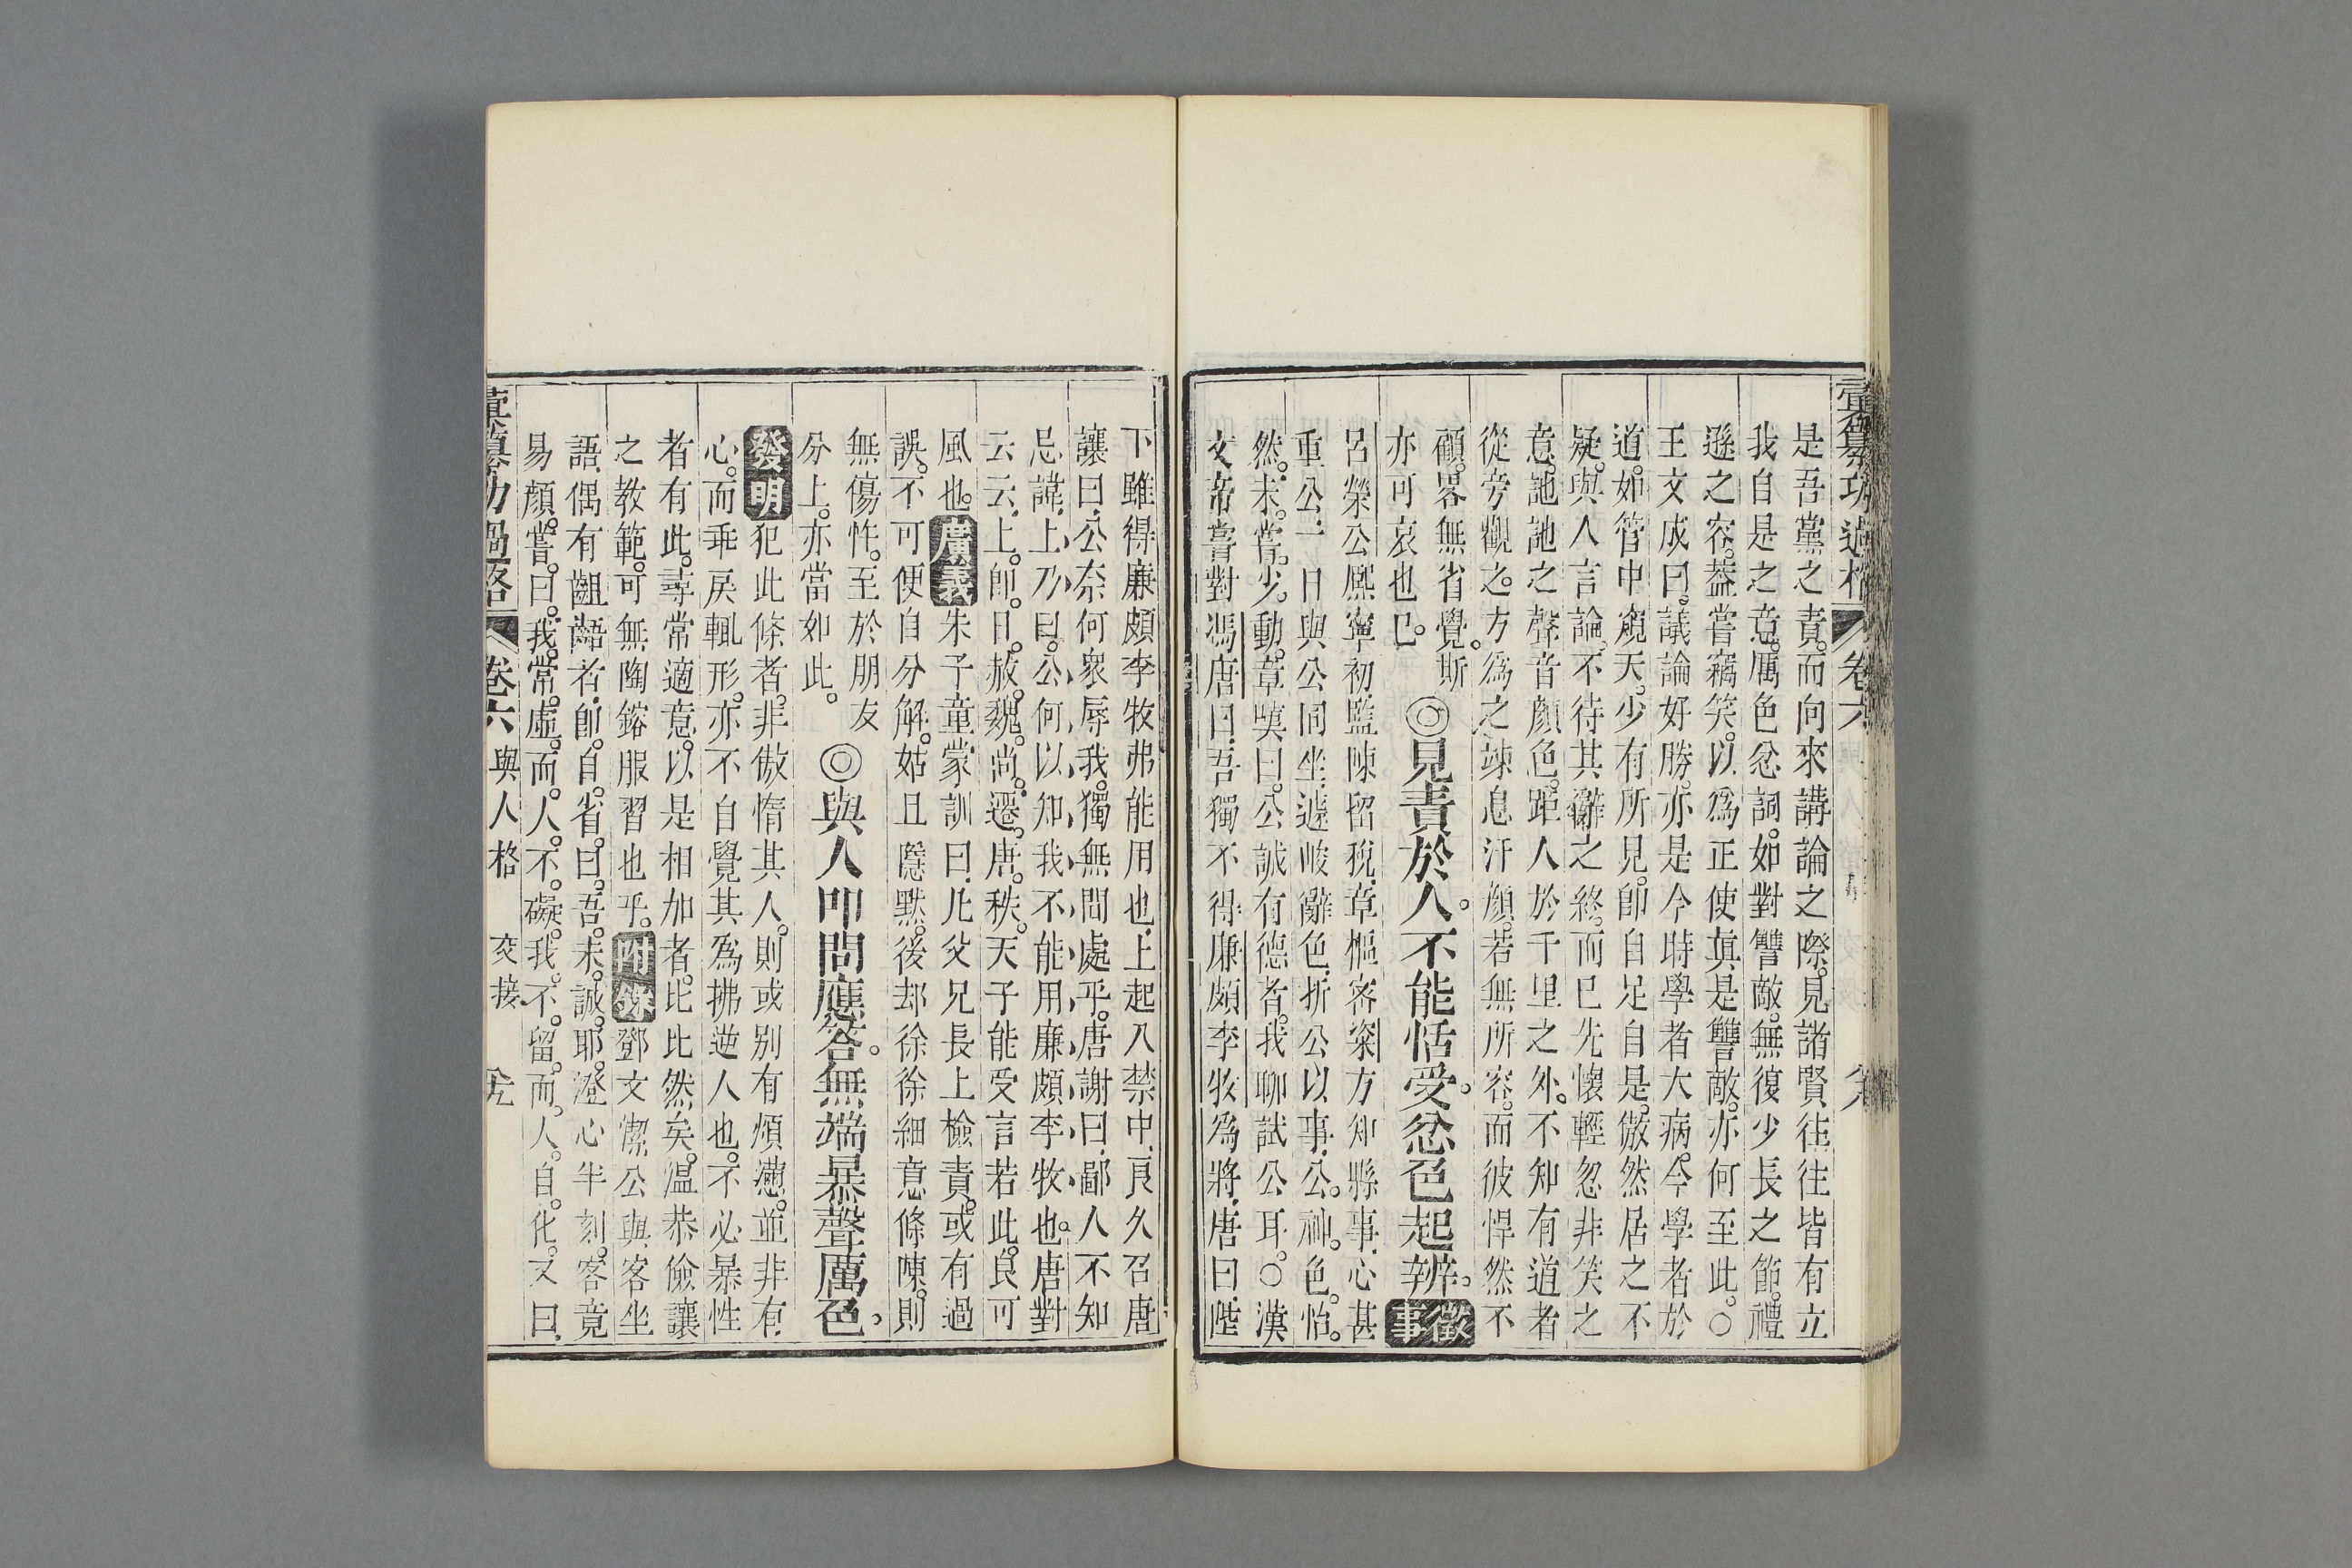 彙纂功過格 卷六
是吾黨之責。而向來講論之際。見諸賢往往皆有立
我自是之意。厲色忿詞。如對讐敵。無復少長之節。禮
遜之容。葢嘗竊笑。以爲正使眞是讐敵。亦何至此。○
王文成曰。議論好勝。亦是今時學者大病。今學者於
道。如管中窺天。少有所見。卽自足自是。傲然居之不
疑。與人言論。不待其辭之終。而已先懷輕忽非笑之
意。訑訑之聲音顏色。距人於千里之外。不知有道者
從旁觀之。方爲之竦息汗顏。若無所容。而彼悍然不
顧。畧無省覺。斯
亦可哀也已。
◎見責於人。不能恬受。忿色起辨。
徵事
呂榮公熙寧初。監陳留稅。章樞密楶方知縣事。心甚
重公。一日與公同坐。遽峻辭色。折公以事。公。神。色。怡。
然。未。嘗。少。動。章嘆曰。公誠有德者。我聊試公耳。○漢
文帝嘗對馮唐曰。吾獨不得廉頗李牧爲將。唐曰。陛
下雖得廉頗李牧弗能用也。上起入禁中。良久召唐
讓曰。公奈何衆辱我。獨無間處乎。唐謝曰。鄙人不知
忌諱。上乃曰。公何以知我不能用廉頗李牧也。唐對
云云。上。卽。日。赦。魏。尚。遷。唐。秩。天子能受言若此。良可
風也。廣義朱子童蒙訓曰。凡父兄長上檢責。或有過
誤。不可便自分解。姑且隱默。後却徐徐細意條陳。則
無傷忤。至於朋友
分上。亦當如此。
◎與人叩問應答。無端暴聲厲色。
發明犯此條者。非傲惰其人。則或别有煩懣。並非有
心。而乖戾輒形。亦不自覺其為拂逆人也。不必暴性
者有此。尋常適意。以是相加者。比比然矣。温恭儉讓
之教範。可無陶鎔服習也乎。附錄鄧文潔公與客坐
語。偶有齟齬者。卽。自。省。曰。吾。未。誠。耶。澄心半刻。客竟
易顏。嘗。曰。我。常。虛。而。人。不。礙。我。不。留。而。人。自。化。又曰。
彙纂功過格 卷六 與人格 交接